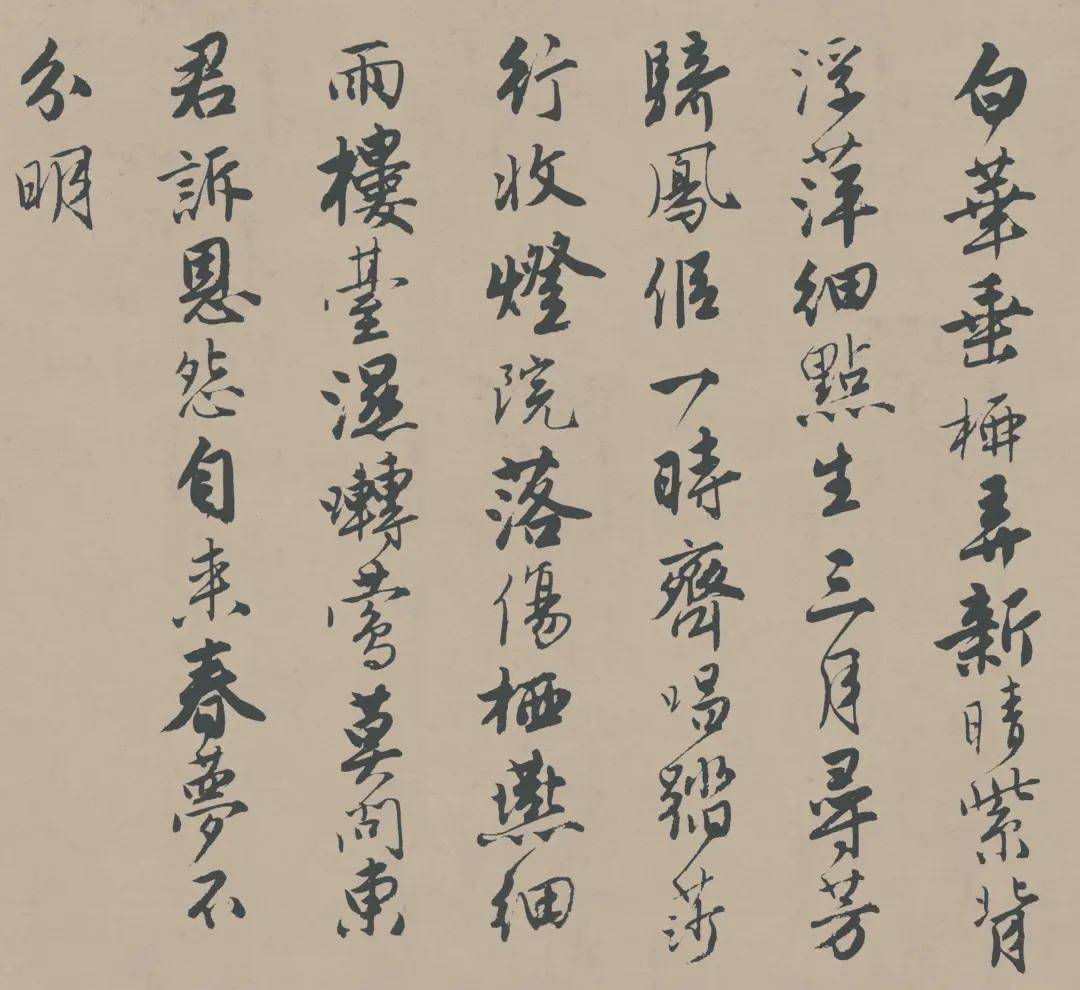 白華垂柳弄新晴紫背
浮萍細點生三月尋芳
騎鳳侶一時齊唱踏莎
行收燈院落傷栖燕細
雨樓臺濕囀鶯莫問東
君訴恩怨自來春夢不
分明